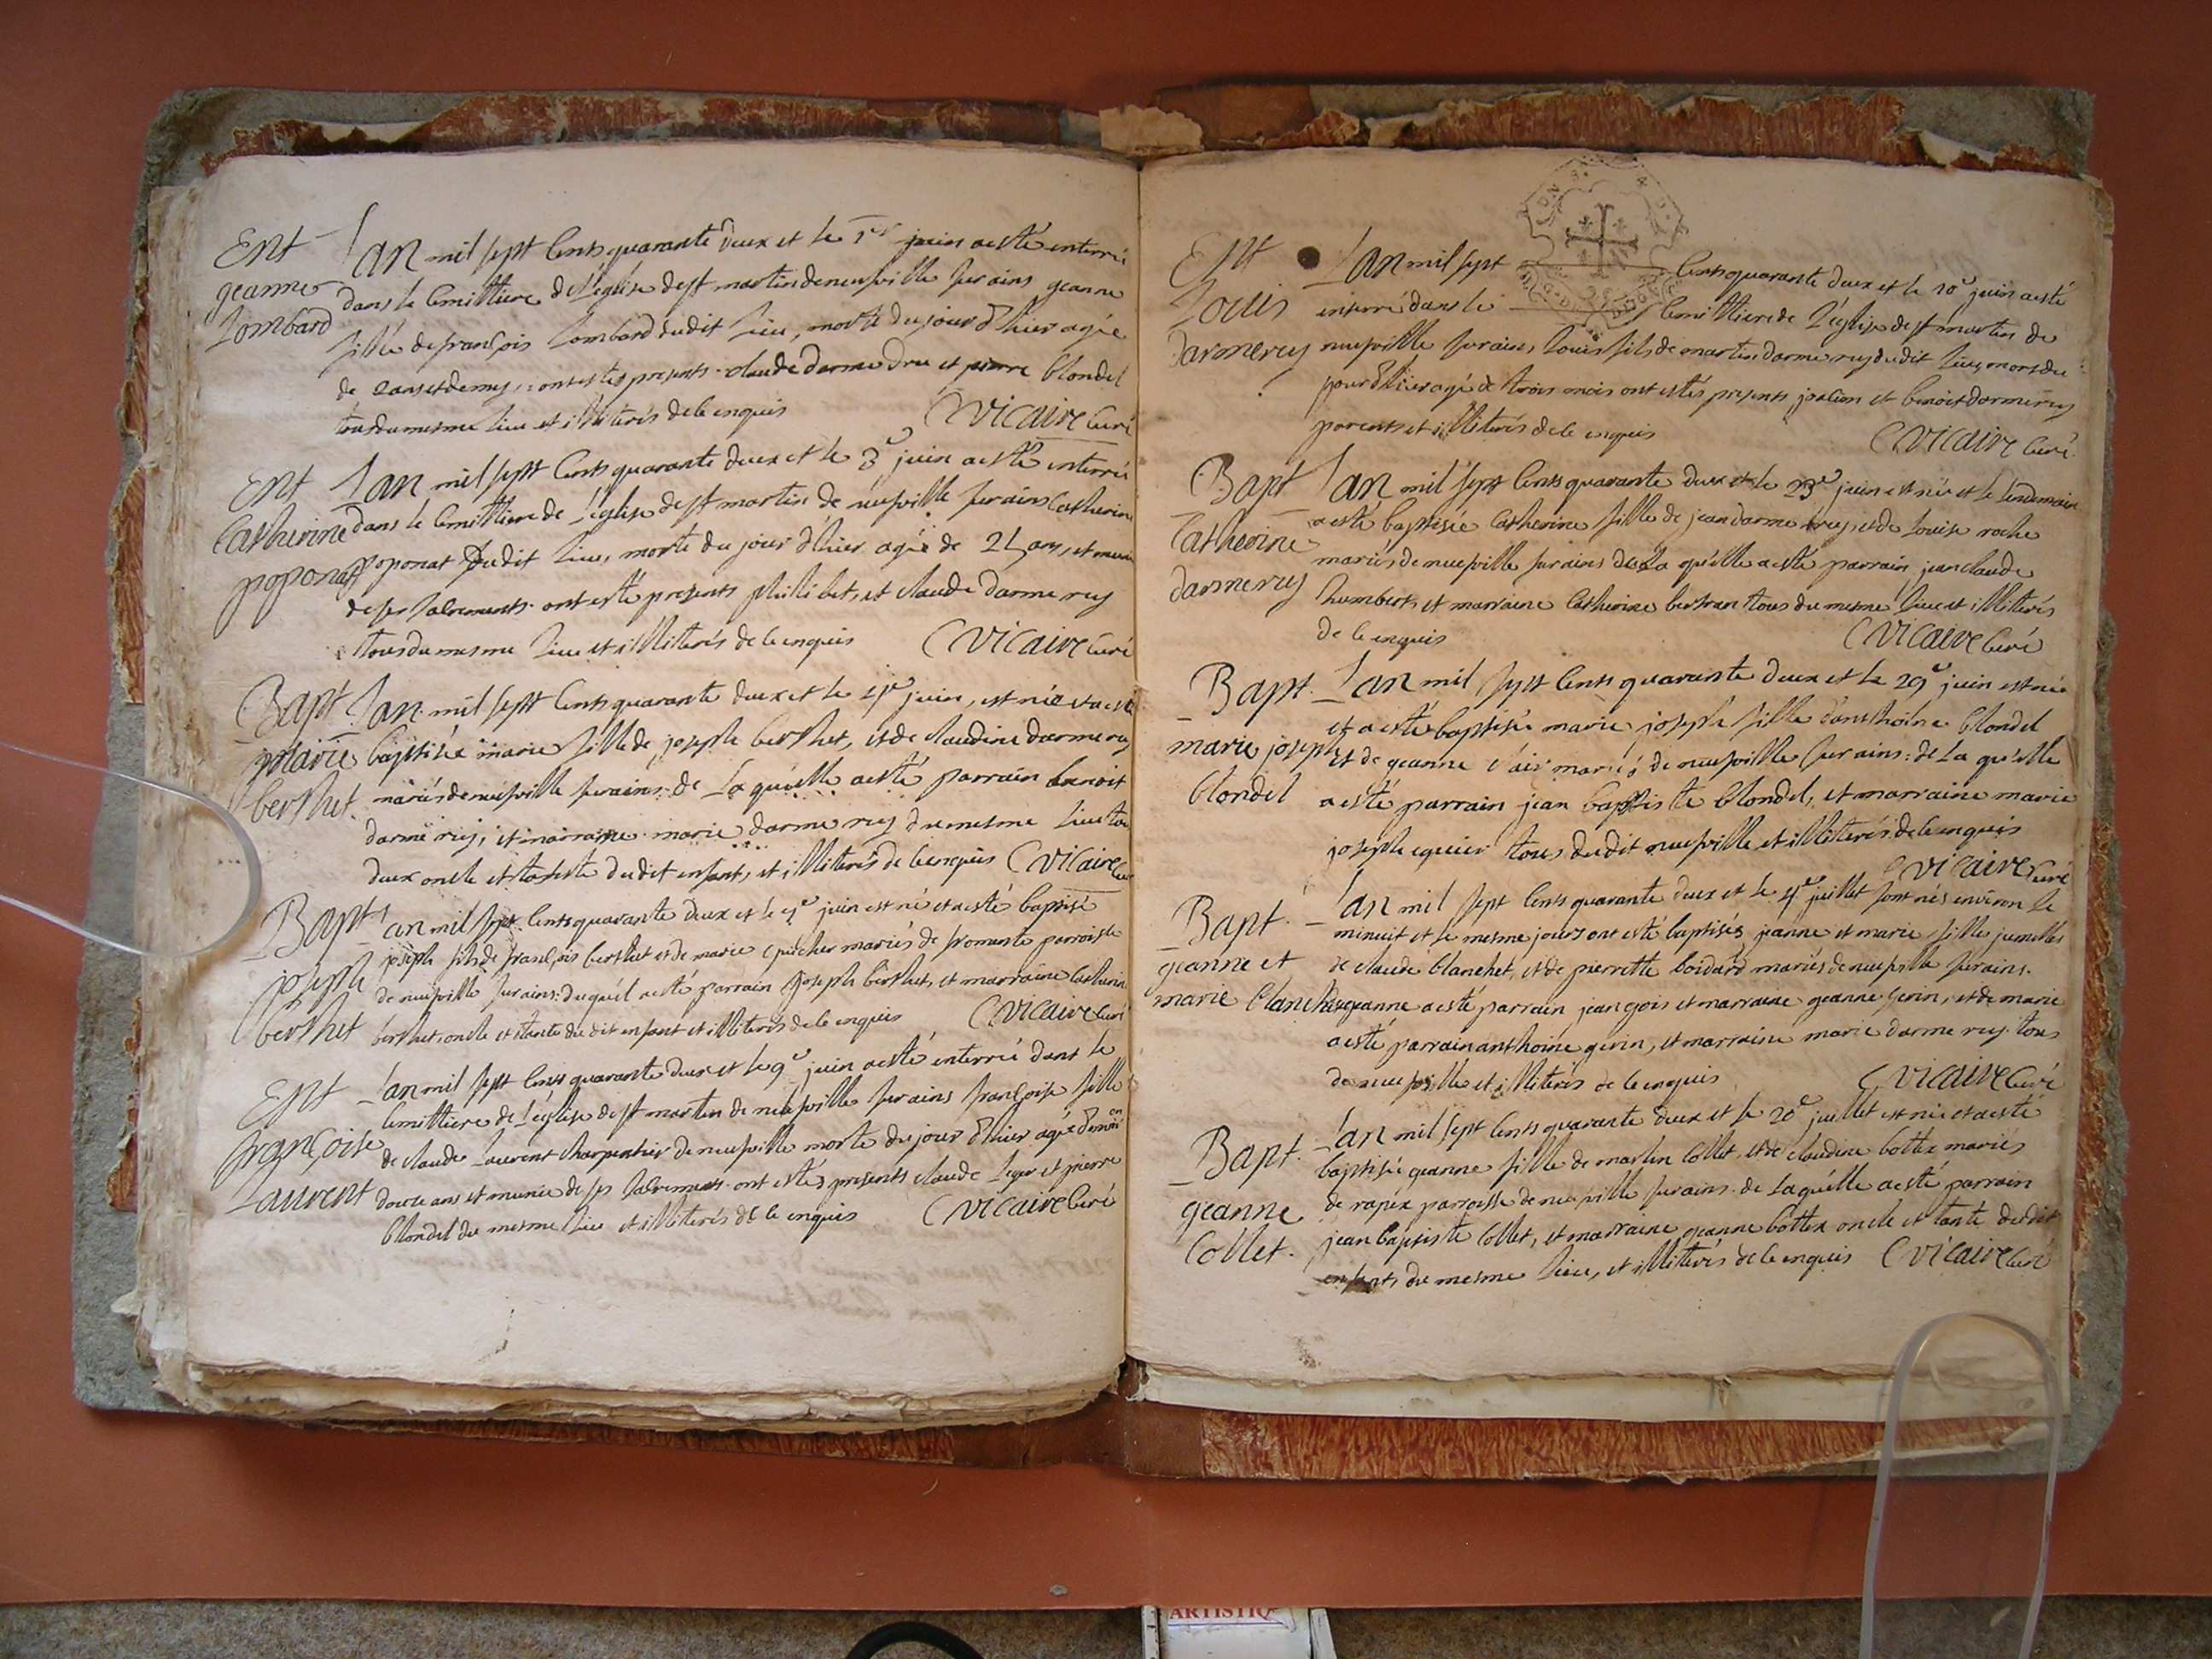 Ent
geanne
Lombard
Lan mil sept cents quarante deux et le 1er juin a esté enterré
dans le cemittiere de l'eglise de st martin de neufville sur ains geanne
fille de françois Lombard dudit lieu, morte du jour d'hier agée
de 2 ans et demy, : ont estés presents claude darme dru et pierre blondel
tous du mesme lieu et illiterés de ce enquis
Vicaire curé
Ent
Catherine
poponat
Lan mil sept cents quarante deux et le 3e juin a esté enterré
dans le cemittiere de l'eglise de st martin de neufville sur ains catherine
poponat dudit lieu, morte du jour d'hier agée de ans, et munie
de ses sacrements ont esté presents philibet, et claude darmerey
tous du mesme lieu et illiterés de ce enquis
Vicaire curé
Bapt
marie
berthet.
Lan mil sept cents quarante deux et le juin, est née et a esté
baptisée marie fille de joseph berthet, et de claudine darmerey
mariés de neufville sur ains: de la quelle a esté parrain benoit
darmerey, et marraine marie darmerey du mesme lieu tous
deux oncle et tante dudit enfant, et illiterés de ce enquis Vicaire curé
Bapt
joseph
berthet
Lan mil sept cents quarante deux et le juin est né et a esté baptisé
joseph fils de françois berthet et de marie mariés de fromente parroisse
de neufville sur ains: duquel a esté parrain joseph berthet, et marraine catherine
berthet, oncle et tante dudit enfant et illiterés de ce enquis
Vicaire curé
Ent
françoise
Laurent
Lan mil sept cents quarante deux et le 9e juin a esté enterrée dans le
cemittiere de l'eglise de st martin de neufville sur ains françoise fille
de claude Laurent charpentier de neufville morte du jour d'hier agée d'environ
douze ans et munie de ses sacrements ont estés presents claude Leger et pierre
blondel du mesme lieu et illiterés de ce enquis
Vicaire curé
Ent
Louis
darmerey
Lan mil sept cents quarante deux et le 10e juin a esté
enterré dans le cemittiere de l'eglise de st martin de
neufville sur ains, Louis fils de martin darmerey dudit lieu, mort du
jour d'hier agé de trois mois ont estés presents et benoit darmerey
parents et illiterés de ce enquis
Vicaire curé
Bapt
Catherine
darmerey
Lan mil sept cents quarante deux et le 23e juin est née et le lendemain
a esté baptisée catherine fille de jean darmerey, et de Louise roche
mariés de neufville sur ains de la quelle a esté parrain jean claude
humbert, et marraine catherine bertran tous du mesme lieu et illiterés
de ce enquis
Vicaire curé
Bapt.
marie joseph
blondel
Lan mil sept cents quarante deux et le 29e juin est née
et a esté baptisée marie joseph fille d'anthoine blondel
et de geanne mariés de neufville sur ains: de la quelle
a esté parrain jean baptiste blondel, et marraine marie
joseph tous dudit neufville et illiterés de ce enquis
Vicaire curé
Bapt.
geanne et
marie blanchet
Lan mil sept cents quarante deux et le juillet sont nés environ le
minuit et le mesme jour ont esté baptisés jeanne et marie filles jumelles
de claude blanchet, et de pierrette boidard mariés de neufville sur ains.
de geanne a esté parrain jean gois et marraine geanne gerin, et de marie
a esté parrain anthoine gerin, et marraine marie darmerey. tous
de neufville et illiterés de ce enquis
Vicaire curé
Bapt.
geanne
Collet.
Lan mil sept cents quarante deux et le 20e juillet est née et a esté
baptisée geanne fille de martin Collet, et de claudine bottex mariés
de rapéx parroisse de neufville sur ains. de laquelle a esté parrain
jean baptiste Collet, et marraine geanne bottex oncle et tante dudit
enfant du mesme lieu, et illiterés de ce enquis Vicaire curé
ARTISTIQ